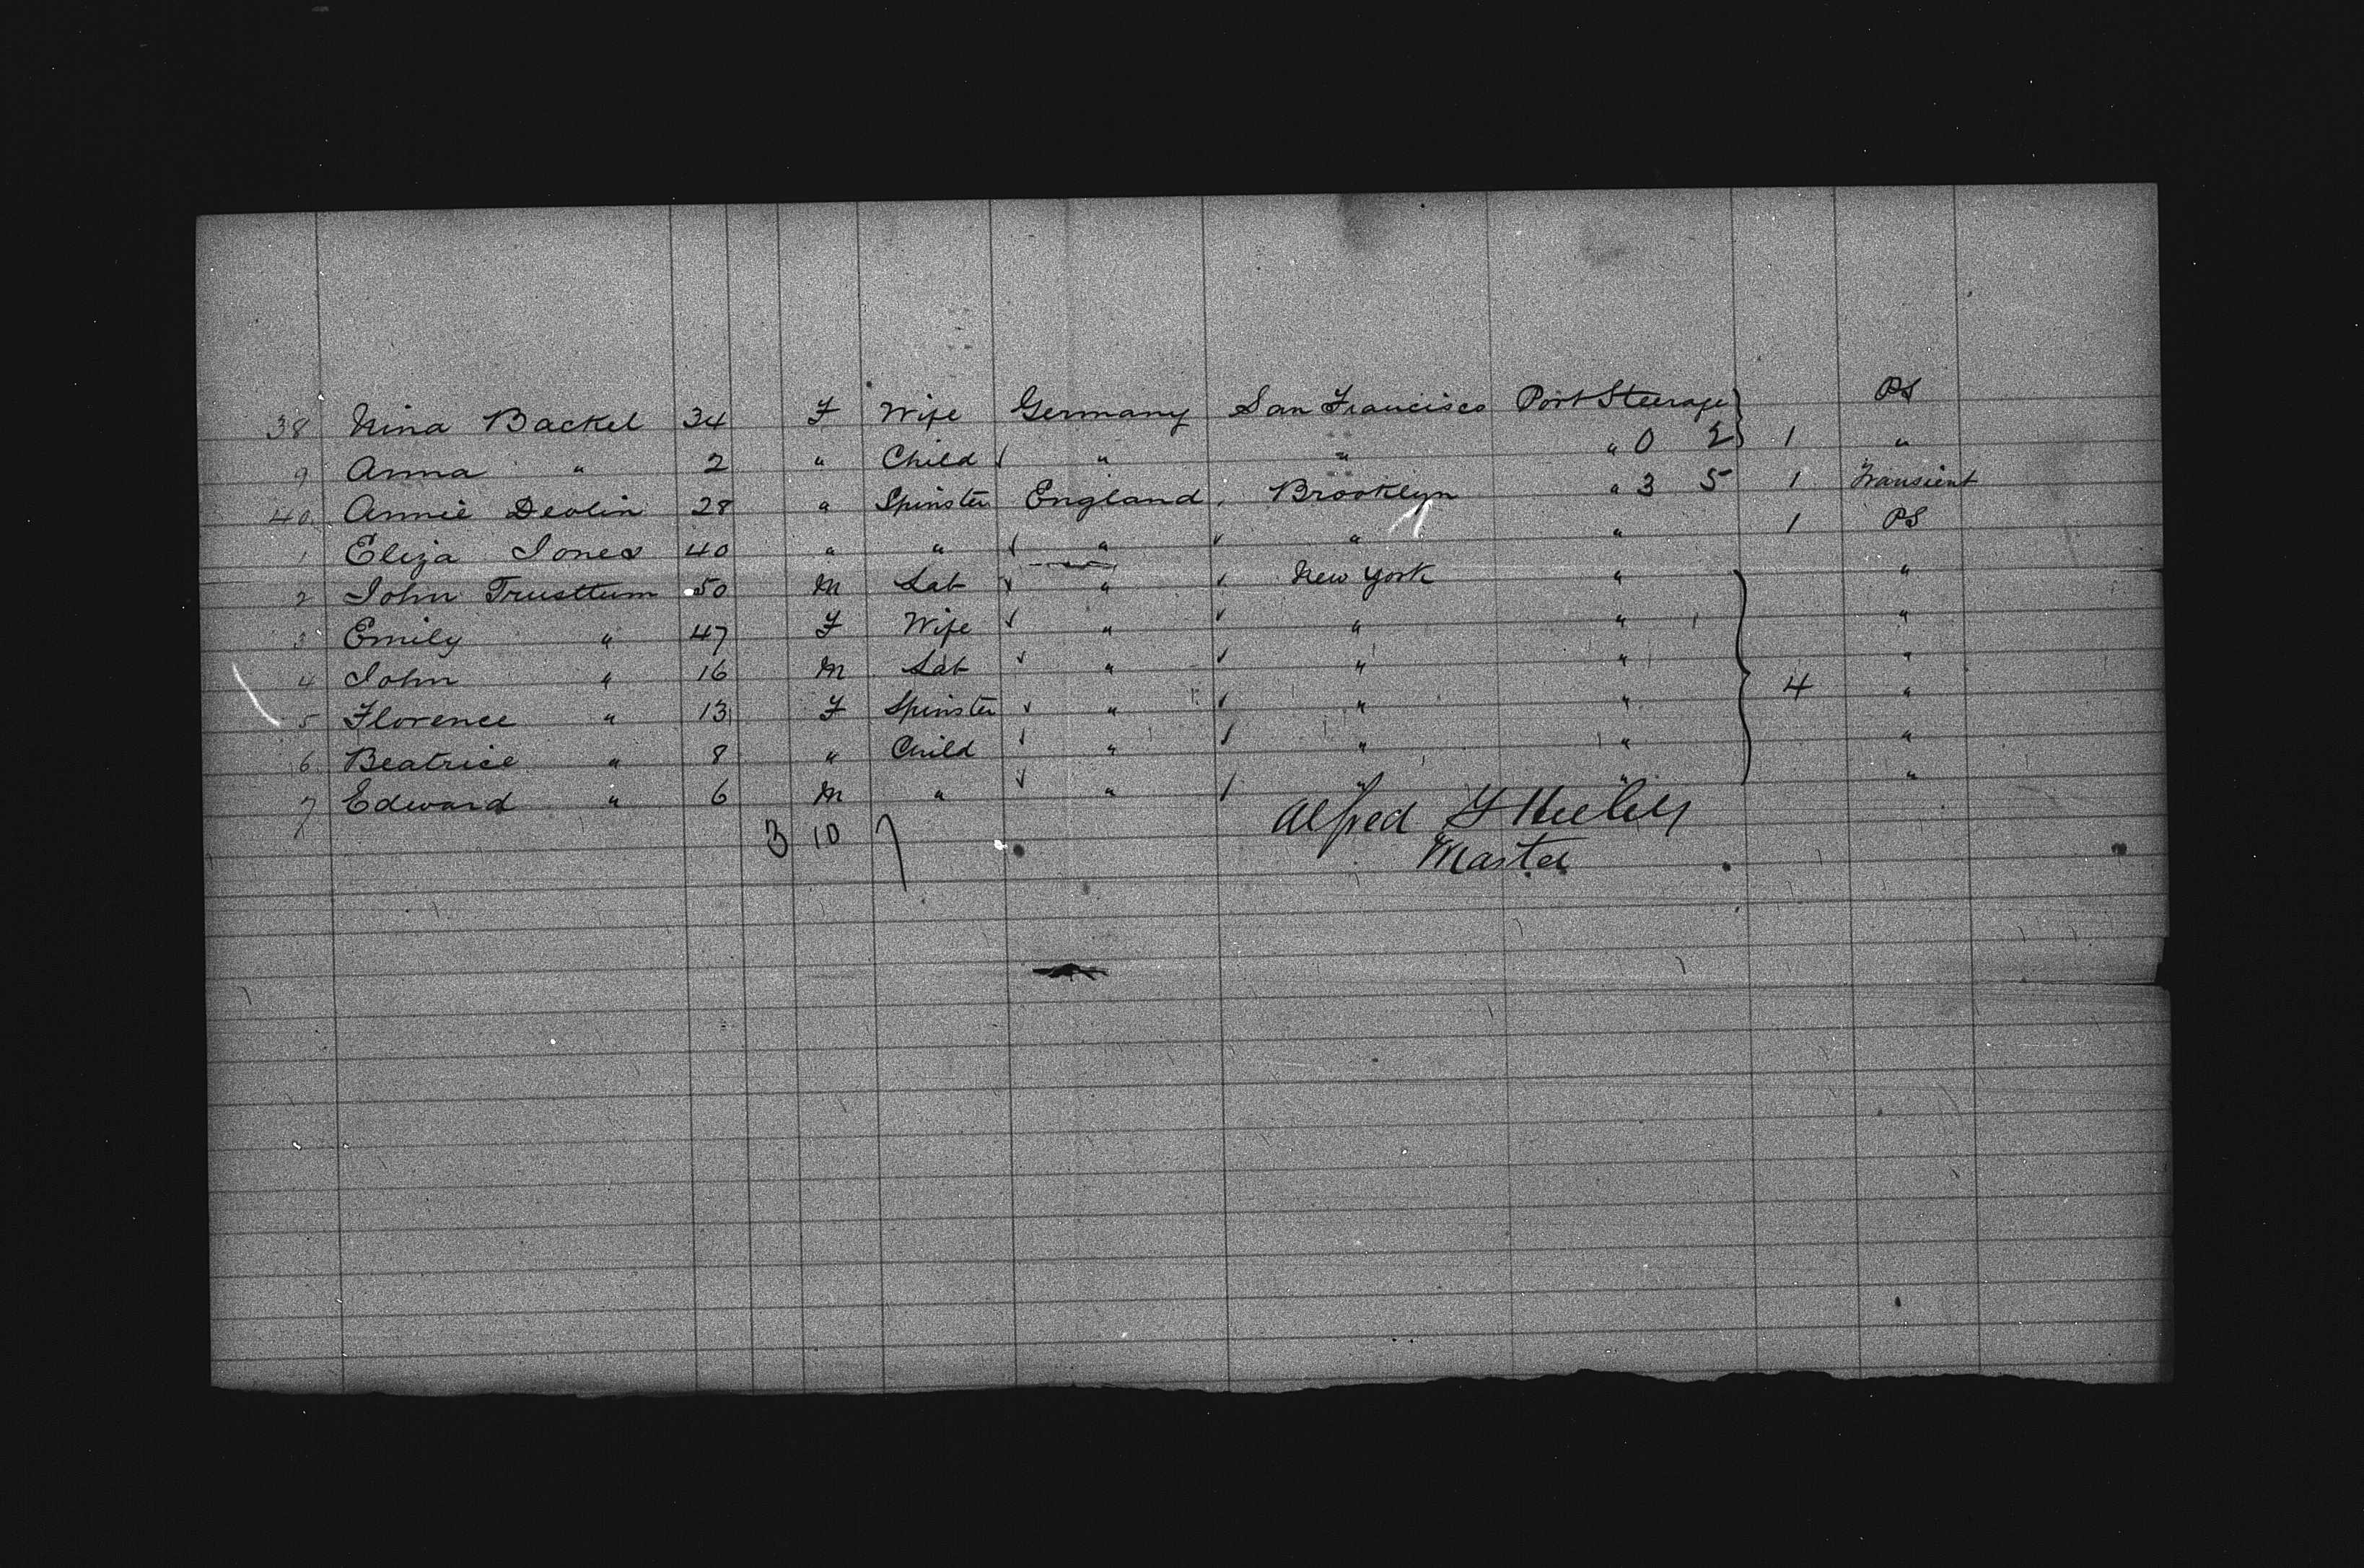 38 Nina Backel 34 F Wife Germany San Francisco Port Steerage PS
9 Anna " 2 " Child " " " 0 2 1 "
40 Annie Devlin 28 " Spinster England Brooklyn " 3 5 1 Transient
1 Eliza Jones 40 " " " " " 1 PS
2 John Trusttum 50 M Lab " New York " "
3 Emily " 47 F Wife " " " "
4 John " 16 M Lab " " " "
5 Florence " 13 F Spinster " " " 4 "
6 Beatrice " 8 " Child " " " "
7 Edward " 6 M " " " " "
3 10 7
Alfred
Master